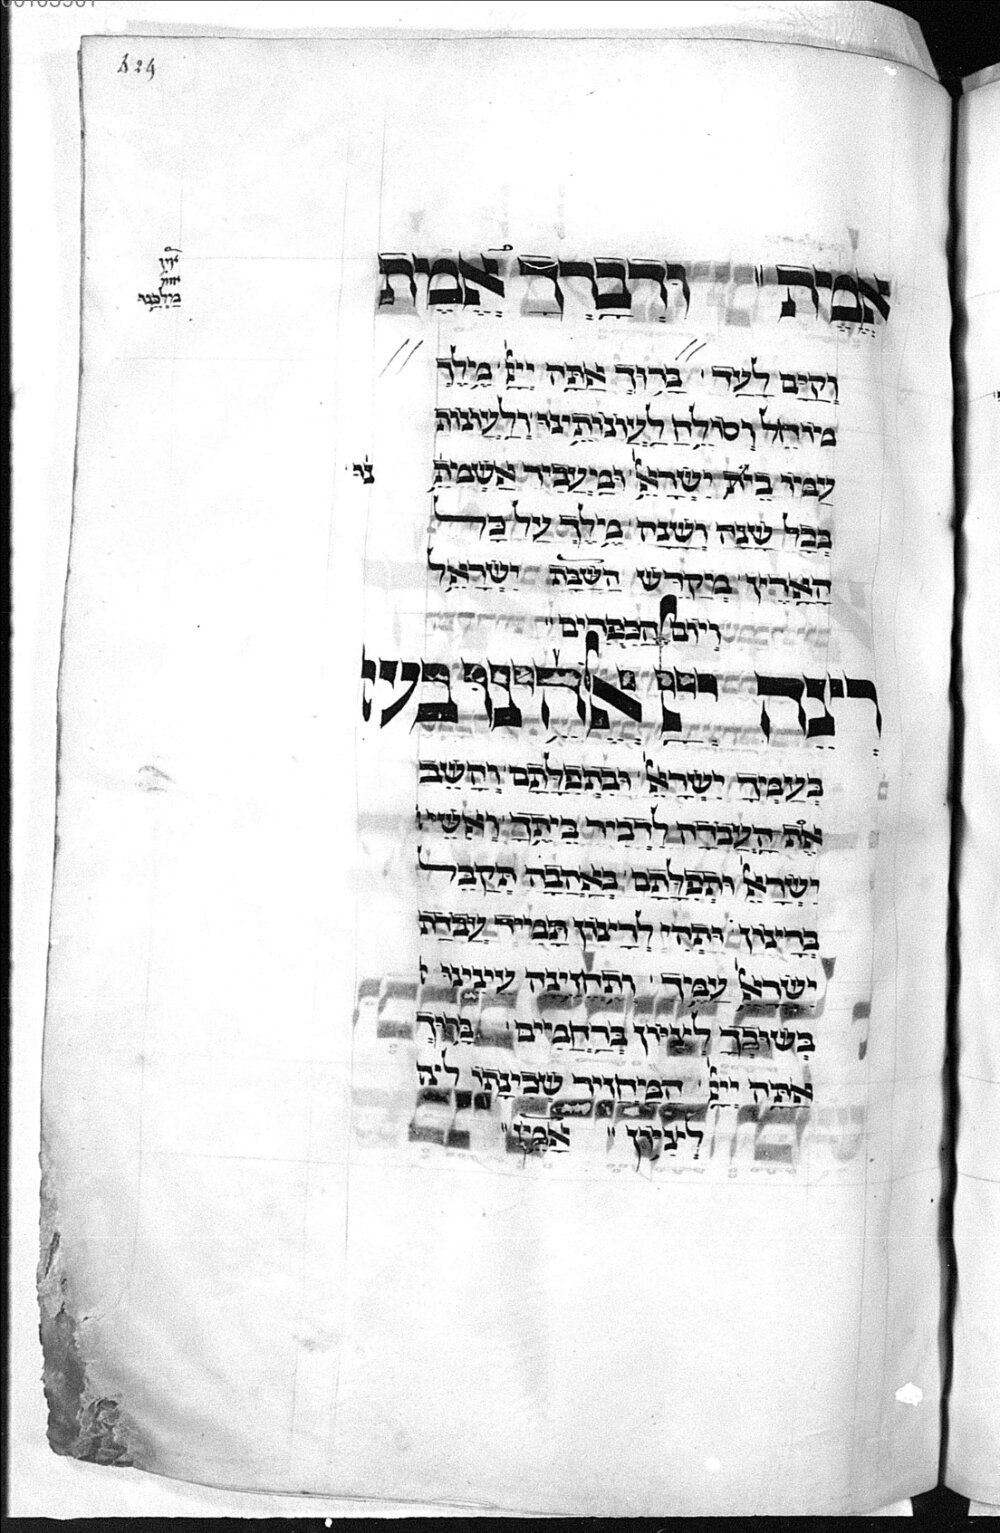 424
אמת ודברך אמת
וקים לעד ברוך אתה ייי מלך
מוחל וסולח לעונותינו ולעונות
עמו בית ישרא ומעביר אשמתי
נו
בכל שנה ושנה מלך על כל
הארץ מקדש השבת ישראל
ויום הכפרים
רצה ייי אהינו בעו
בעמך ישרא ובתפלתם והשב
את העבדה לדביר ביתך ואשי
ישרא ותפלתם באהבה תקבל
ברצון ותהי לרצון תמיד עבדת
ישרא עמך ותחזינה עינינו
בשובך לציון ברחמים ברוך
אתה ייי המחזיר שכינתו לית
לציון אמץ